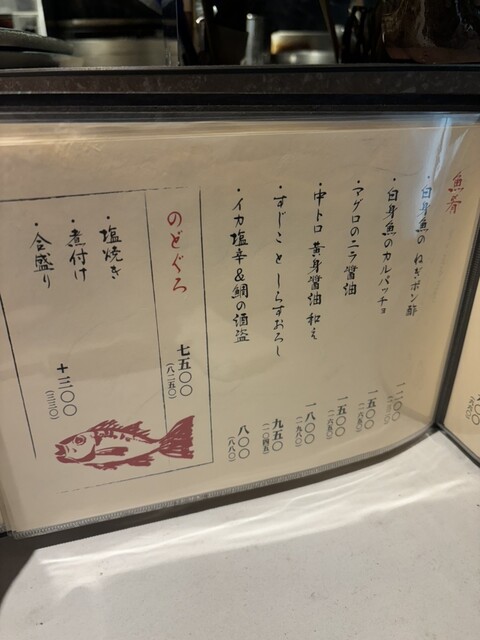 魚肴
・白身魚の ねぎポン酢
一二〇〇
・白身魚のカルパッチョ
一五〇〇
(一六五〇)
・マグロのニラ醤油
一五〇〇
(一六五〇)
・中トロ 黄身醤油和え
一八〇〇
(一九八〇)
・すじことしらすおろし
九五〇
(一〇四五)
・イカ塩辛&鯛の酒盗
八〇〇
(八八〇)
のどぐろ
七五〇〇
(八二五〇)
・塩焼き
・煮付け
+三〇〇
(三三〇)
・合盛り